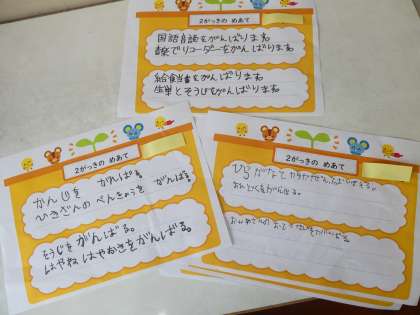 2がっきの めあて
国語音読をがんばります
音楽でリコーダーをがんばります
給食当番をがんばります
生単とそうじをがんばります
2がっきの めあて
かんじを がんばる。
ひきざんの べんきょうを がんばる。
そうじをがんばる。
はやね はやおきをがんばる。
2がっきの めあて
ひらがなとカタカナぜんぶおぼえる。
おんどくをがんばる。